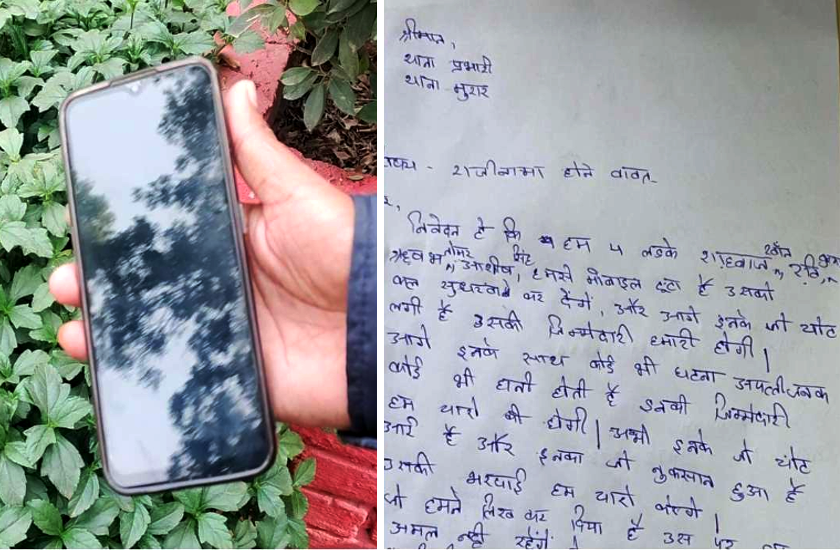 श्रीमान,
थाना प्रभारी
थाना मुरार
- राजीनामा होने वावत
निवेदन है कि हम 4 लडके शाहवाज खॉन, रवि,
ऋषभ तोमर, आशीष, हमसे मोबाइल टूटा है उसको
कल सुधरवाके कर देंगे, और आगे इनके जो चोट
लगी है उसकी जिम्मेदारी हमारी होगी।
आगे इनके साथ कोई भी घटना
कोई भी हानी होती है इनकी जिम्मेदारी
हम चारो की होगी। अभी इनके जो चोट
आई है और इनका जो नुकसान हुआ है
उसकी भरपाई हम चारो करेगे।
जो हमने लिख कर दिया है उस पर
अमल नही रहेंगे